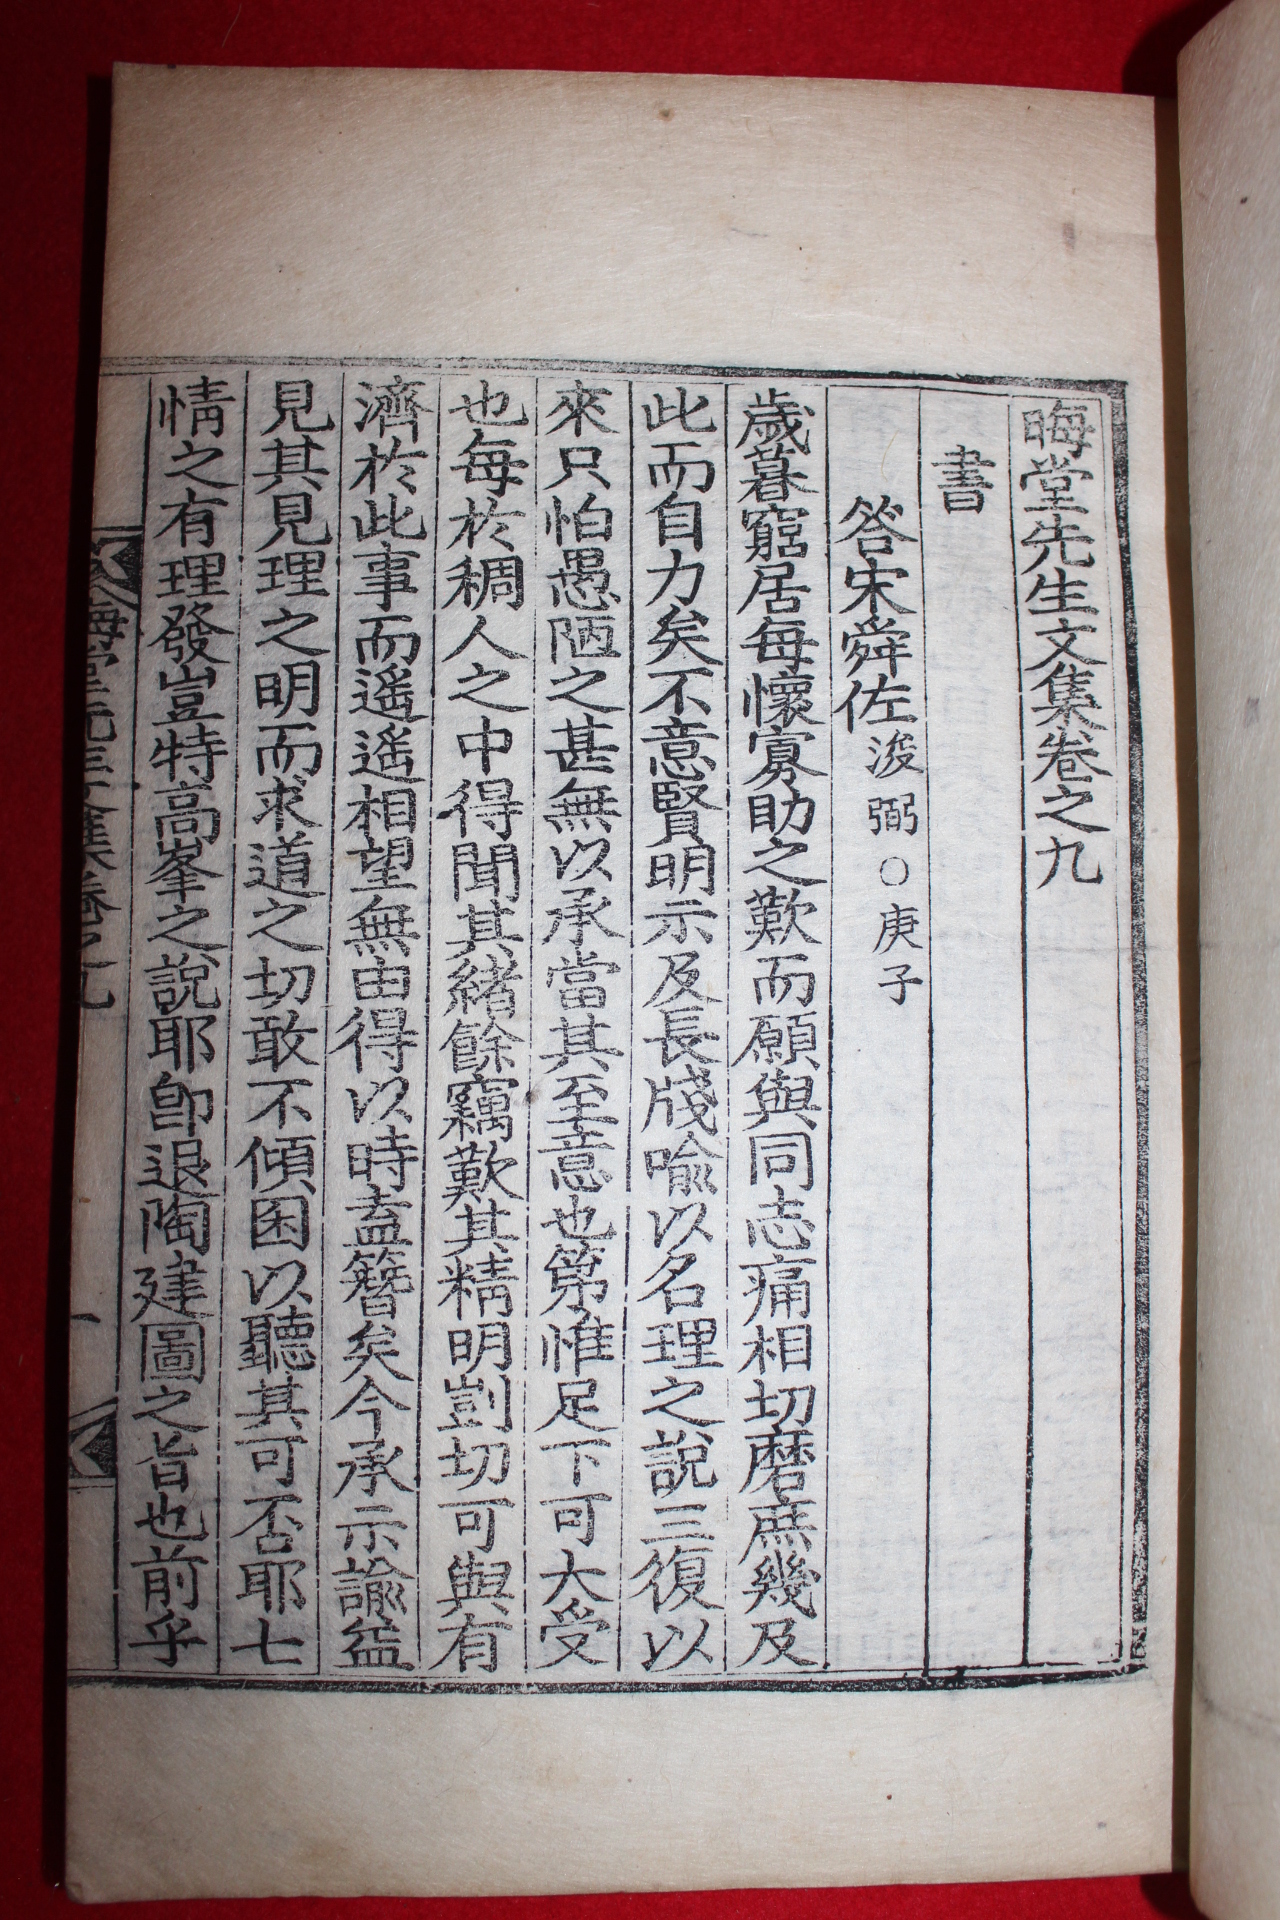 晦堂先生文集卷之九
書
答宋舜佐浚弼○庚子
歲暮窮居每懷寡助之歎而願與同志痛相切磨庶幾及
此而自力矣不意賢明示及長牋喩以名理之說三復以
來只怕愚陋之甚無以承當其至意也第惟足下可大受
也每於稠人之中得聞其緖餘竊歎其精明剴切可與有
濟於此事而遙遙相望無由得以時盍簪矣今承示諭益
見其見理之明而求道之切敢不傾囷以聽其可否耶七
情之有理發豈特高峯之說耶卽退陶建圖之旨也前乎
晦堂先生文集卷之九
一